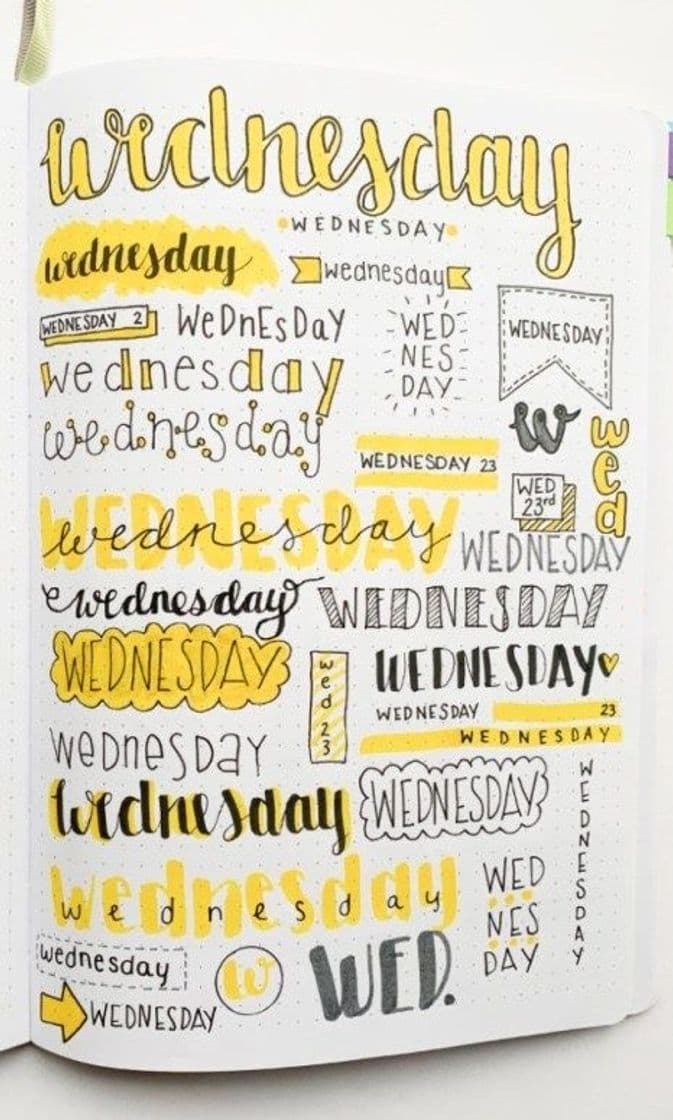 wednesday
WEDNESDAY
wednesday
wednesday
WEDNESDAY 2
WeDnEsDaY
WED
NES
DAY
WEDNESDAY
wednesday
wednesday
w
wed
WEDNESDAY 23
WED
23rd
WEDNESDAY
wednesday
WEDNESDAY
wednesday
WEDNESDAY
WEDNESDAY
wed 23
WEDNESDAY
WEDNESDAY 23
WEDNESDAY
wednesday
wednesday
WEDNESDAY
WEDNESDAY
wednesday
wednesday
WED
NES
DAY
wednesday
w
WED.
WEDNESDAY